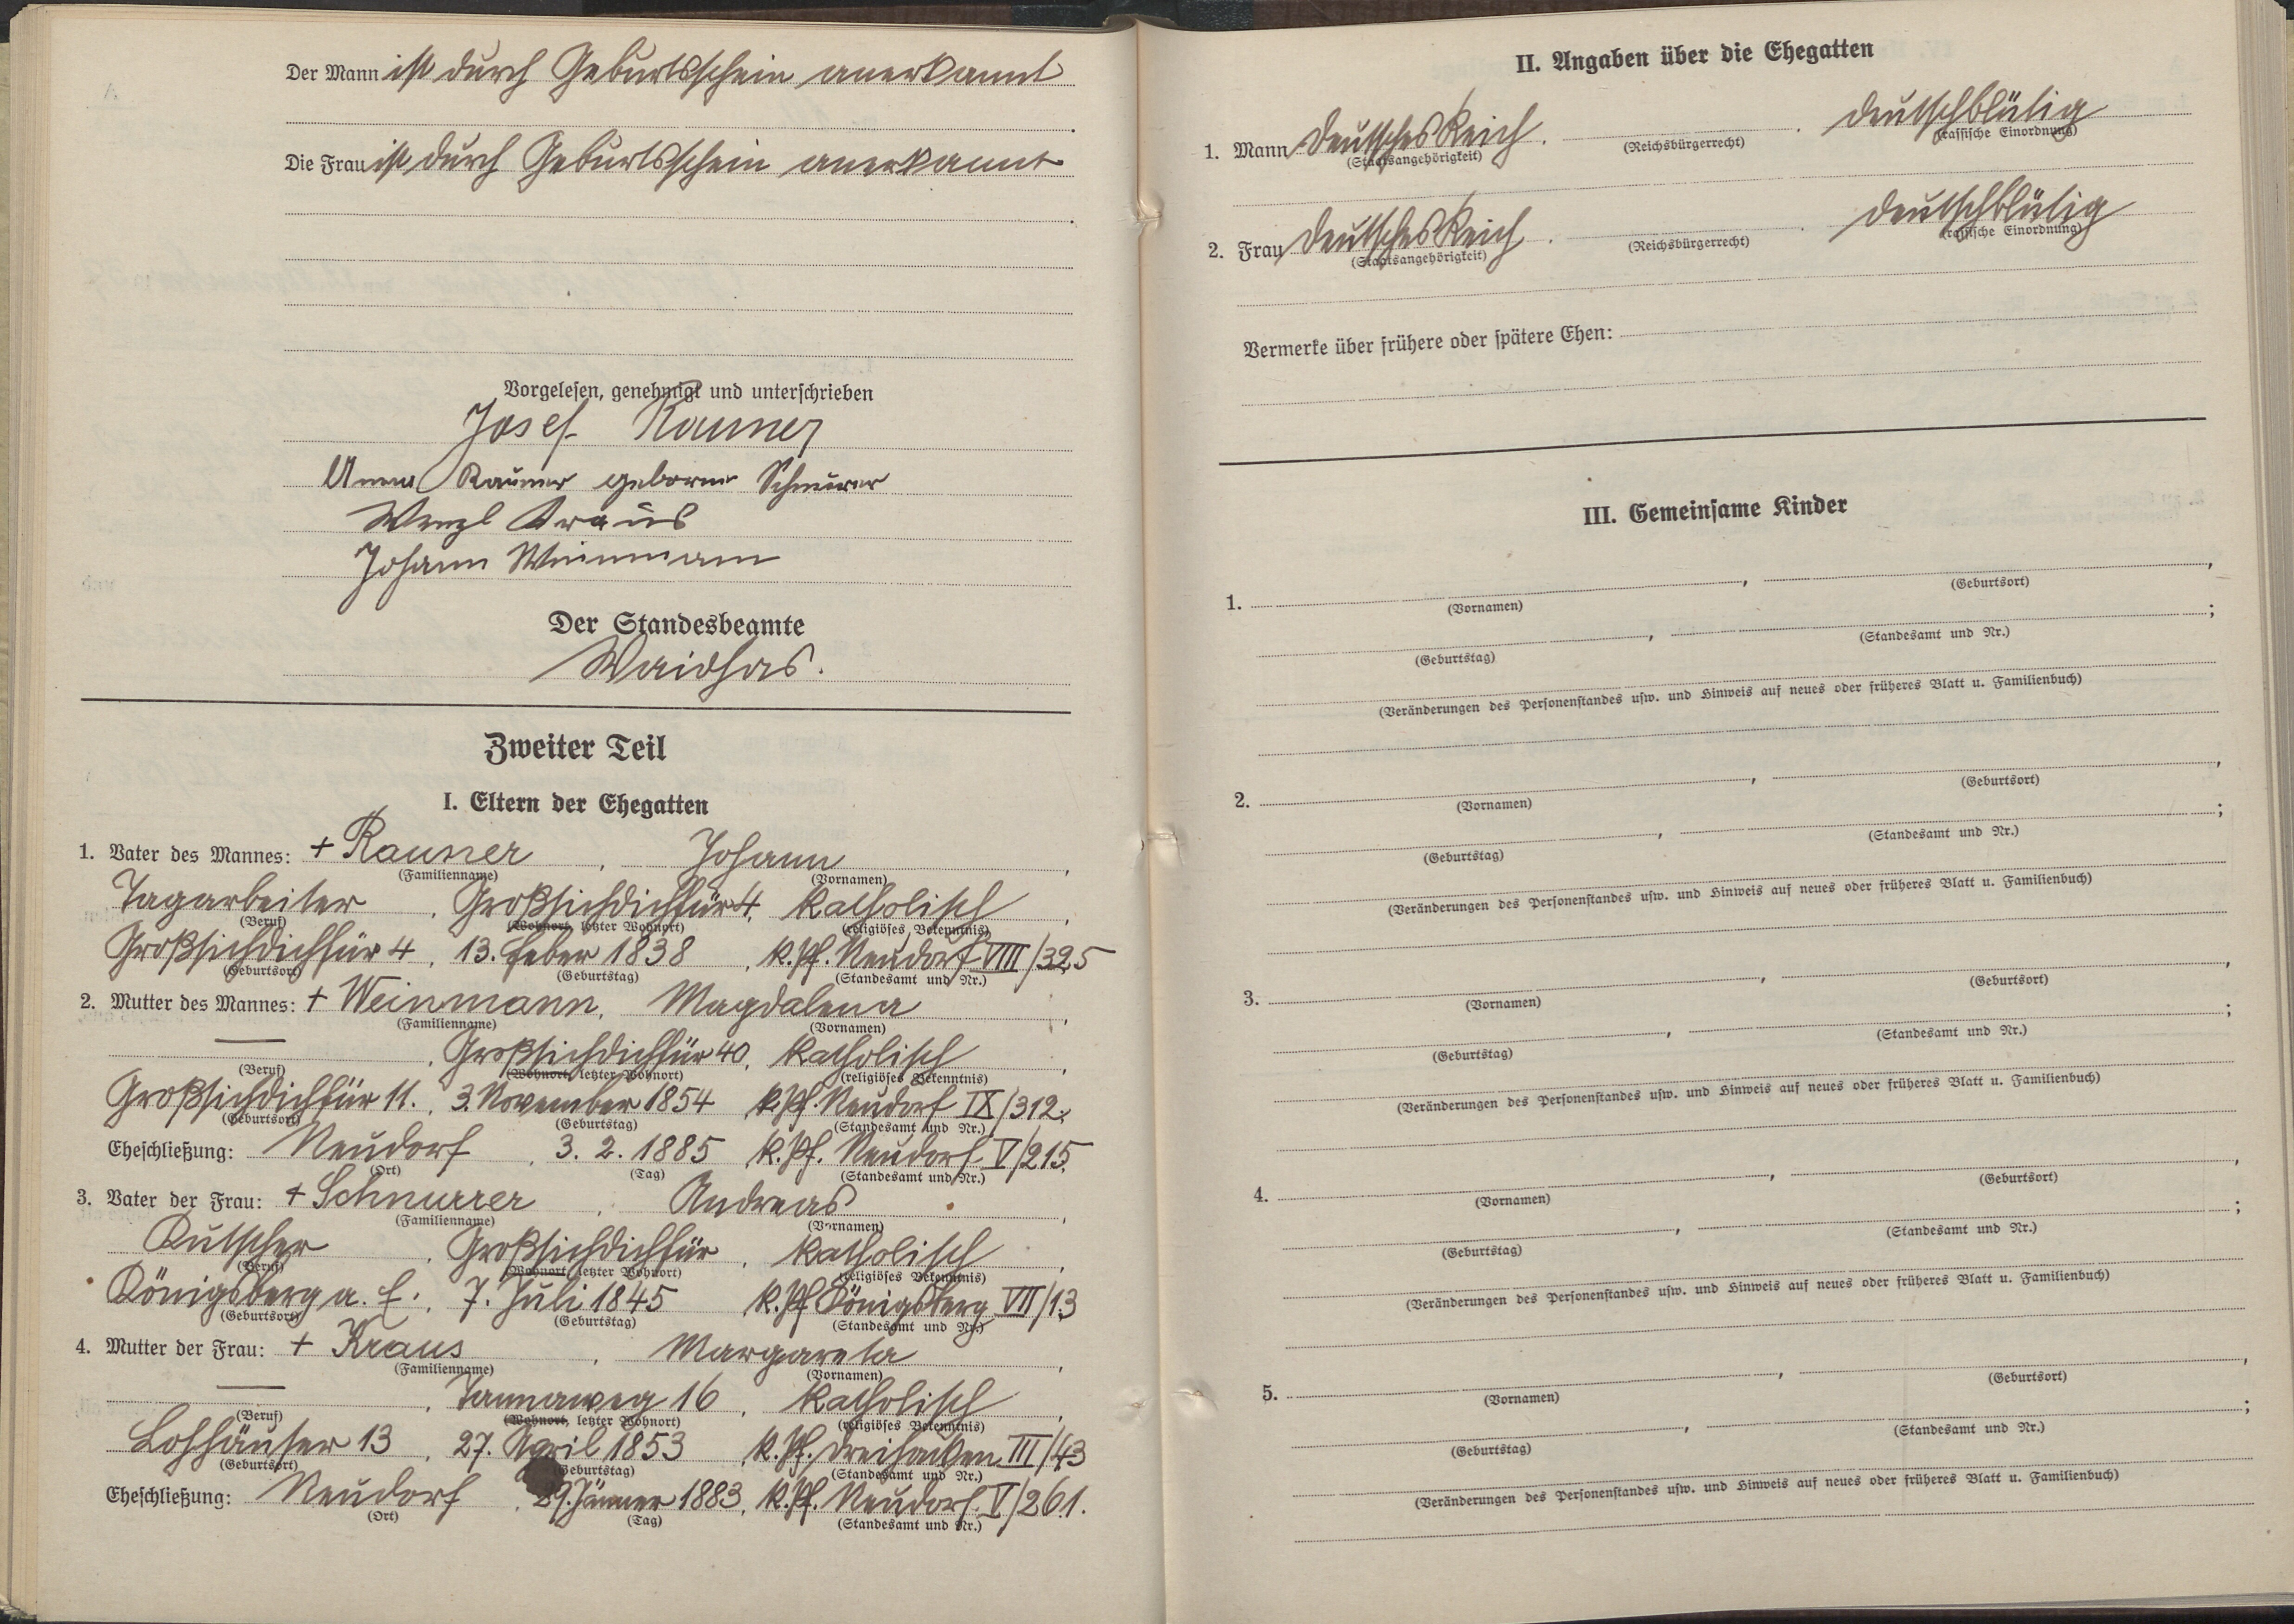 Der Mann ist durch Geburtsschein anerkannt
Die Frau ist durch Geburtsschein anerkannt
Vorgelesen, genehmigt und unterschrieben
Josef Rauner
Anna Rauner geborene Schnurer
Wenzl Kraus
Johann Weinmann
Der Standesbeamte
Waidhas.
Zweiter Teil
I. Eltern der Ehegatten
1. Vater des Mannes: + Rauner, Johann,
(Familienname) (Vornamen)
Tagarbeiter, Großsichdichfür 4, katholisch,
(Beruf) (Wohnort, letzter Wohnort) (religiöses Bekenntnis)
Großsichdichfür 4, 13. Feber 1838, k. Pf. Neudorf VIII/325
(Geburtsort) (Geburtstag) (Standesamt und Nr.)
2. Mutter des Mannes: + Weinmann, Magdalena,
(Familienname) (Vornamen)
—, Großsichdichfür 40, katholisch,
(Beruf) (Wohnort, letzter Wohnort) (religiöses Bekenntnis)
Großsichdichfür 11., 3. November 1854 k. Pf. Neudorf IX/312.
(Geburtsort) (Geburtstag) (Standesamt und Nr.)
Eheschließung: Neudorf, 3. 2. 1885, k. Pf. Neudorf V/215.
(Ort) (Tag) (Standesamt und Nr.)
3. Vater der Frau: + Schnurrer, Andreas,
(Familienname) (Vornamen)
Kutscher, Großsichdichfür, katholisch,
(Beruf) (Wohnort, letzter Wohnort) (religiöses Bekenntnis)
Königsberg a. E., 7. Juli 1845 k. Pf. Königsberg VII/13
(Geburtsort) (Geburtstag) (Standesamt und Nr.)
4. Mutter der Frau: + Kraus, Margareta,
(Familienname) (Vornamen)
—, Tannaweg 16, katholisch,
(Beruf) (Wohnort, letzter Wohnort) (religiöses Bekenntnis)
Lohhäuser 13, 27. April 1853, k. Pf. Dreihacken III/43
(Geburtsort) (Geburtstag) (Standesamt und Nr.)
Eheschließung: Neudorf, 29. Jänner 1883, k. Pf. Neudorf V/261.
(Ort) (Tag) (Standesamt und Nr.)
II. Angaben über die Ehegatten
1. Mann Deutsches Reich. . deutschblütig
(Staatsangehörigkeit) (Reichsbürgerrecht) (rassische Einordnung)
2. Frau Deutsches Reich . . deutschblütig
(Staatsangehörigkeit) (Reichsbürgerrecht) (rassische Einordnung)
Vermerke über frühere oder spätere Ehen:
III. Gemeinsame Kinder
1. , ,
(Vornamen) (Geburtsort)
, ;
(Geburtstag) (Standesamt und Nr.)
(Veränderungen des Personenstandes usw. und Hinweis auf neues oder früheres Blatt u. Familienbuch)
2. , ,
(Vornamen) (Geburtsort)
, ;
(Geburtstag) (Standesamt und Nr.)
(Veränderungen des Personenstandes usw. und Hinweis auf neues oder früheres Blatt u. Familienbuch)
3. , ,
(Vornamen) (Geburtsort)
, ;
(Geburtstag) (Standesamt und Nr.)
(Veränderungen des Personenstandes usw. und Hinweis auf neues oder früheres Blatt u. Familienbuch)
4. , ,
(Vornamen) (Geburtsort)
, ;
(Geburtstag) (Standesamt und Nr.)
(Veränderungen des Personenstandes usw. und Hinweis auf neues oder früheres Blatt u. Familienbuch)
5. , ,
(Vornamen) (Geburtsort)
, ;
(Geburtstag) (Standesamt und Nr.)
(Veränderungen des Personenstandes usw. und Hinweis auf neues oder früheres Blatt u. Familienbuch)